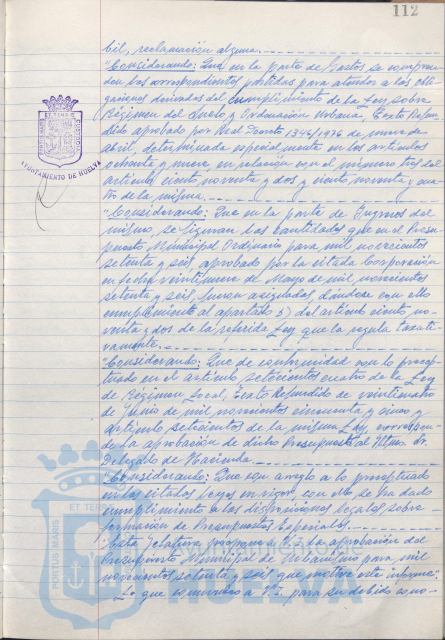 112
bil, reclamación alguna.
"Considerando: Que en la parte de Gastos se compren-
den las correspondientes partidas para atender a las obli-
gaciones derivadas del cumplimiento de la Ley sobre
Régimen del Suelo y Ordenación Urbana, Texto Refun-
dido aprobado por Real Decreto 1346/1976 de nueve de
abril, determinada especialmente en los artículos
ochenta y nueve, en relación con el número tres del
artículo ciento noventa y dos y ciento noventa y cua-
tro de la misma.
"Considerando: Que en la parte de Ingresos del
mismo, se figuran las cantidades que en el Presu-
puesto Municipal Ordinario para mil novecientos
setenta y seis, aprobado por la citada Corporación
en fecha veintinueve de Mayo de mil novecientos
setenta y seis, fueron asignadas, dándose con ello
cumplimiento al apartado 3) del artículo ciento no-
venta y dos de la referida Ley que la regula taxati-
vamente.
"Considerando: Que de conformidad con lo precep-
tuado en el artículo setecientos cuatro de la Ley
de Régimen Local, Texto Refundido de veinticuatro
de Junio de mil novecientos cincuenta y cinco y
artículo setecientos de la misma Ley, correspon-
de la aprobación de dicho Presupuesto al Iltmo. Sr.
Delegado de Hacienda.
"Considerando: Que con arreglo a lo preceptuado
en las citadas Leyes en vigor, con ello se ha dado
cumplimiento a las disposiciones legales sobre
formación de Presupuestos Especiales.
"Esta Jefatura propone a V.I. la aprobación del
Presupuesto Municipal de Urbanismo para mil
novecientos setenta y seis que motiva este informe."
"Lo que comunico a V.I. para su debido cono-
AYUNTAMIENTO DE HUELVA
PORTUS MARIS
ET TERRAE
Ayuntamiento de
HUELVA